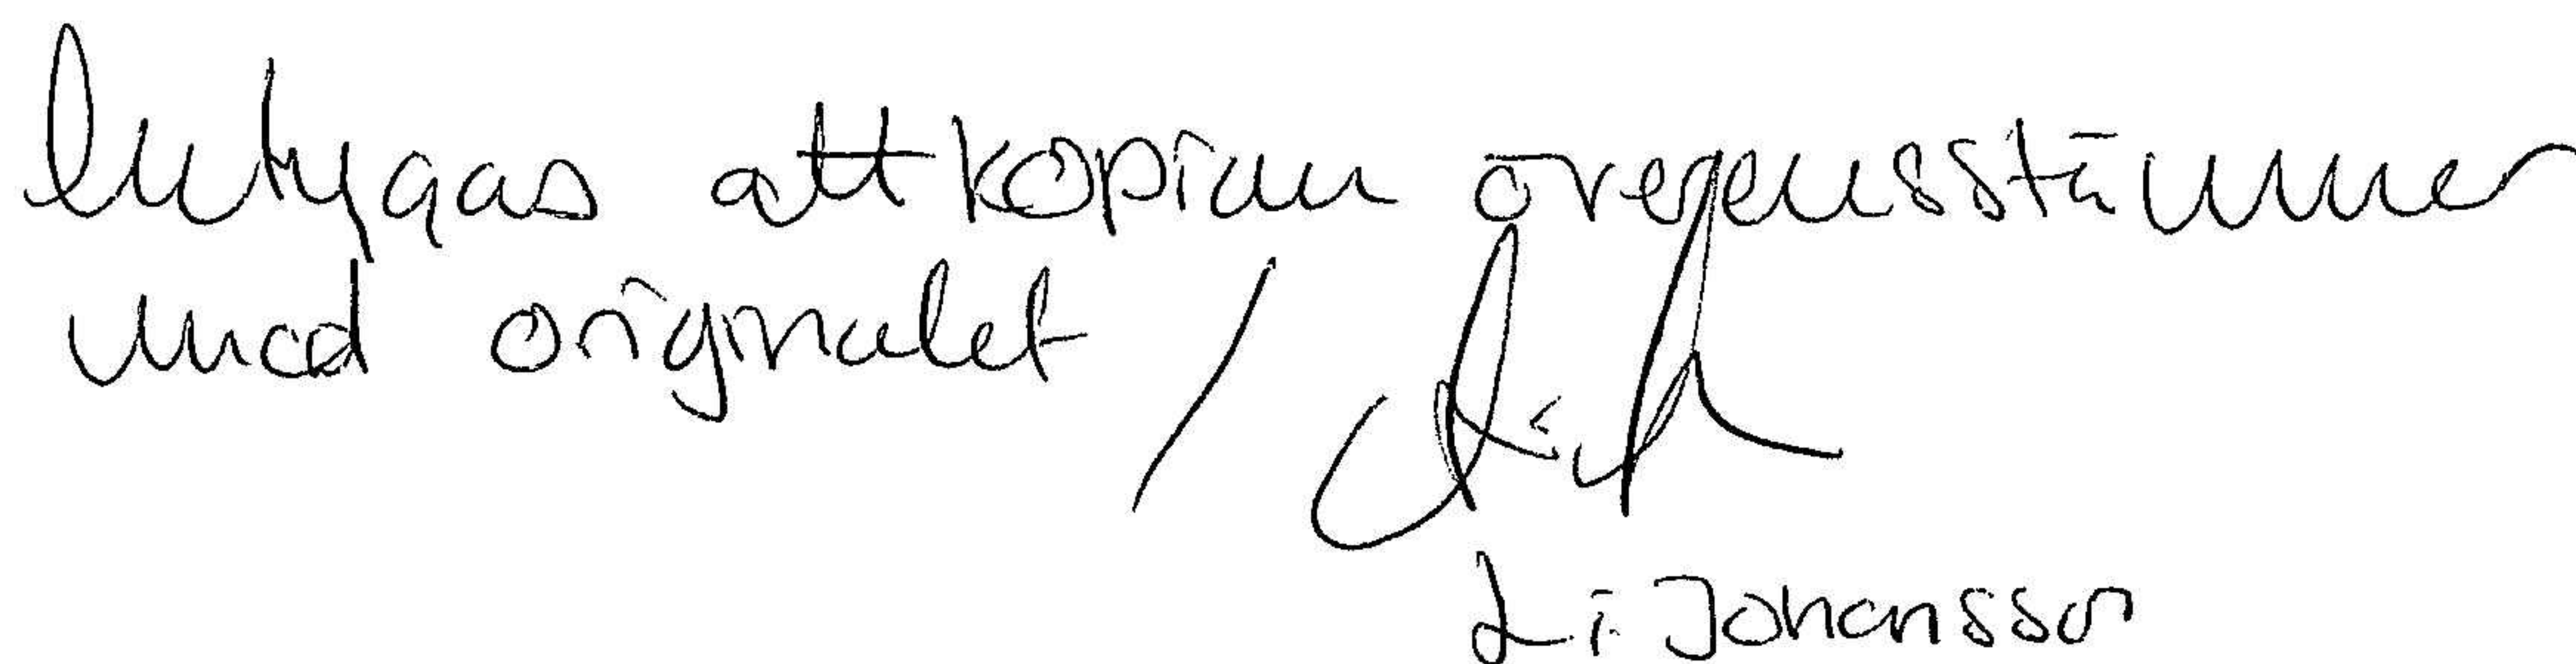 Intygas att kopian överensstämmer
med originalet /
Li Johansson